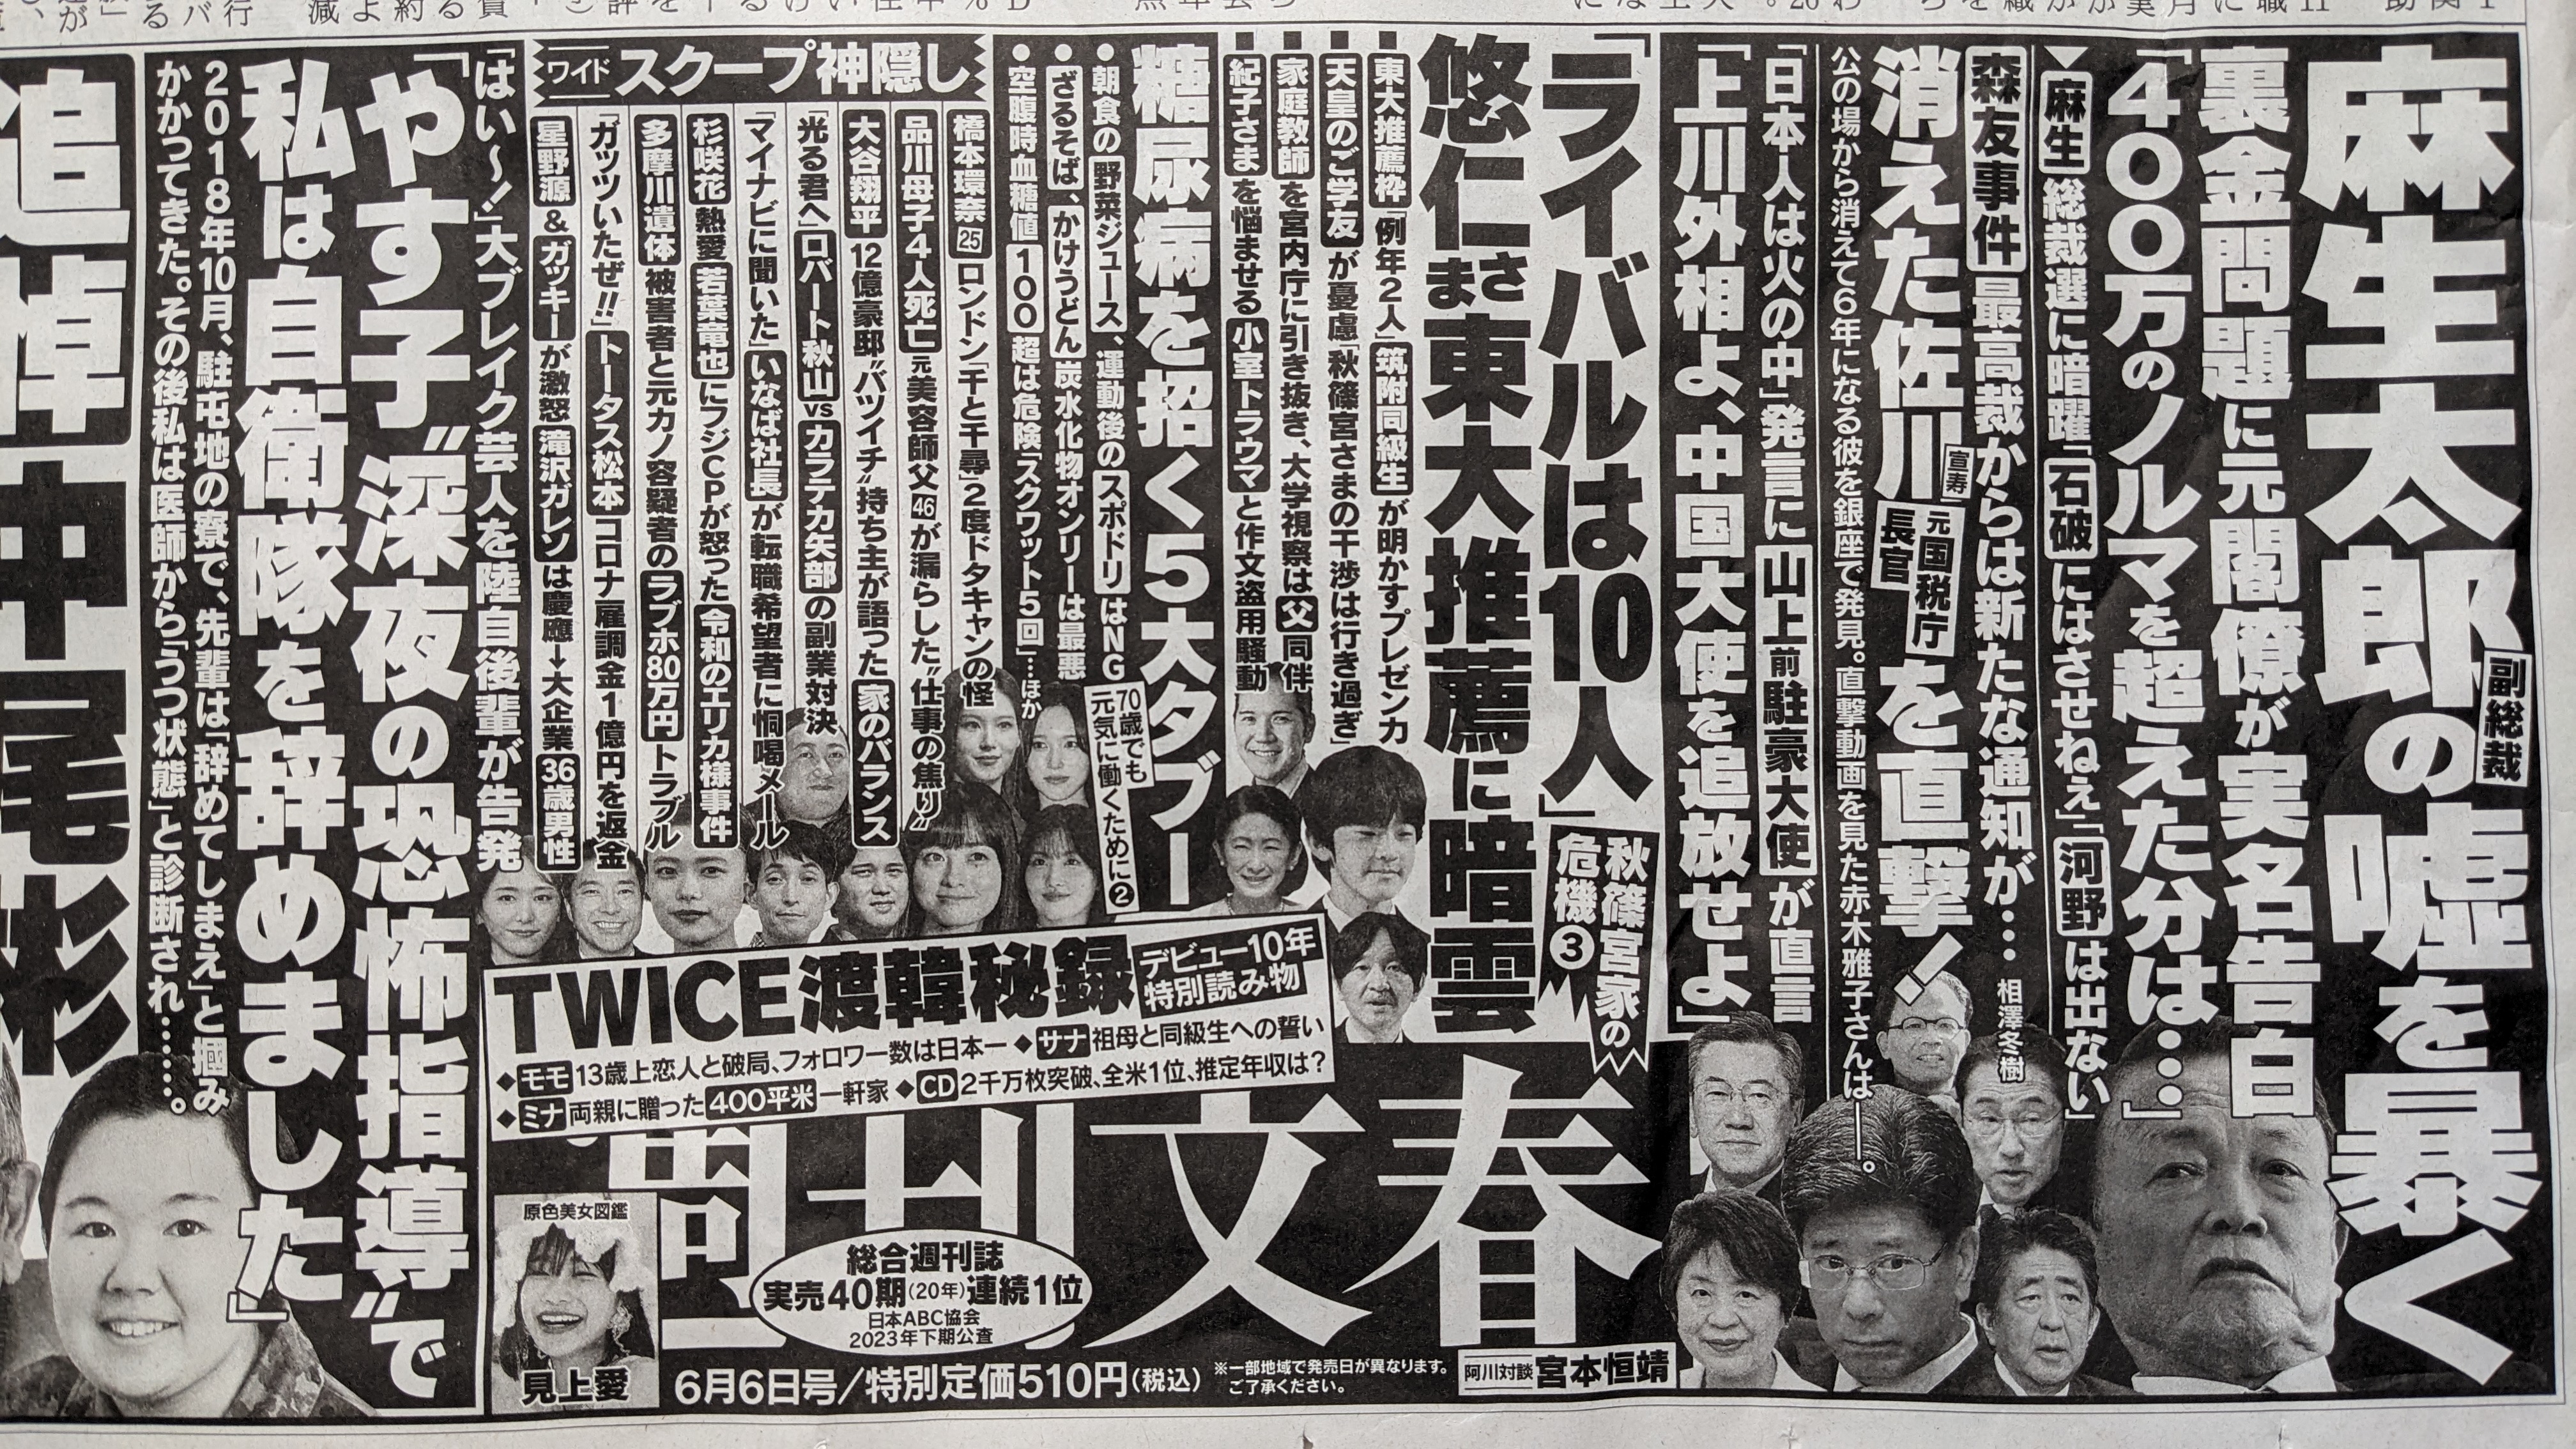 麻生太郎副総裁の嘘を暴く
裏金問題に元閣僚が実名告白
「400万のノルマを超えた分は…」
▼麻生総裁選に暗躍「石破にはさせねえ」「河野は出ない」
森友事件最高裁からは新たな通知が… 相澤冬樹
消えた佐川宣寿元国税庁長官を直撃!
公の場から消えて6年になる彼を銀座で発見。直撃動画を見た赤木雅子さんは――。
「日本人は火の中」発言に山上前駐豪大使が直言
「上川外相よ、中国大使を追放せよ」
「ライバルは10人」
秋篠宮家の危機③
悠仁さま東大推薦に暗雲
■東大推薦枠「例年2人」筑附同級生が明かすプレゼン力
■天皇のご学友が憂慮「秋篠宮さまの干渉は行き過ぎ」
■家庭教師を宮内庁に引き抜き、大学視察は父同伴
■紀子さまを悩ませる小室トラウマと作文盗用騒動
糖尿病を招く5大タブー
70歳でも元気に働くために②
●朝食の野菜ジュース、運動後のスポドリはNG
●ざるそば、かけうどん炭水化物オンリーは最悪
●空腹時血糖値100超は危険「スクワット5回」…ほか
ワイド スクープ神隠し
橋本環奈25ロンドン「千と千尋」2度ドタキャンの怪
品川母子4人死亡元美容師父46が漏らした“仕事の焦り”
大谷翔平12億豪邸“バツイチ”持ち主が語った家のバランス
「光る君へ」ロバート秋山vsカラテカ矢部の副業対決
「マイナビに聞いた」いなば社長が転職希望者に恫喝メール
杉咲花熱愛若葉竜也にフジCPが怒った令和のエリカ様事件
多摩川遺体被害者と元カノ容疑者のラブホ80万円トラブル
「ガッツいたぜ!!」トータス松本コロナ雇調金1億円を返金
星野源&ガッキーが激怒滝沢ガレソは慶應→大企業36歳男性
TWICE渡韓秘録
デビュー10年特別読み物
◆モモ13歳上恋人と破局、フォロワー数は日本一◆サナ祖母と同級生への誓い
◆ミナ両親に贈った400平米一軒家◆CD2千万枚突破、全米1位、推定年収は?
「はい〜!」大ブレイク芸人を陸自後輩が告発
「やす子“深夜の恐怖指導”で
私は自衛隊を辞めました」
2018年10月、駐屯地の寮で、先輩は「辞めてしまえ」と掴み
かかってきた。その後私は医師から「うつ状態」と診断され……。
追悼中尾彬
週刊文春
原色美女図鑑
見上愛
総合週刊誌
実売40期(20年)連続1位
日本ABC協会
2023年下期公査
6月6日号/特別定価510円(税込)
※一部地域で発売日が異なります。
ご了承ください。
阿川対談 宮本恒靖